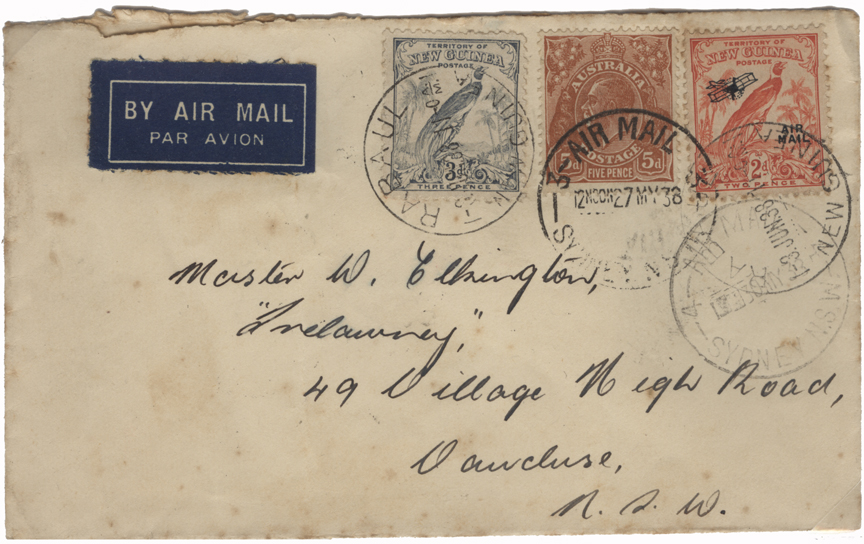 BY AIR MAIL
PAR AVION
TERRITORY OF
NEW GUINEA
POSTAGE
3d
THREE PENCE
AUSTRALIA
POSTAGE
5d 5d
FIVE PENCE
TERRITORY OF
NEW GUINEA
POSTAGE
AIR
MAIL
2d
TWO PENCE
RABAUL
NEW GUINEA
3 - AIR MAIL
12 NOON 27 MY 38
SYDNEY
NEW GUINEA
JUN 38
4 - AIR MAIL
SYDNEY N.S.W
Master W. Elkington,
"Trelawney,"
49 Village High Road,
Vaucluse,
N. S. W.